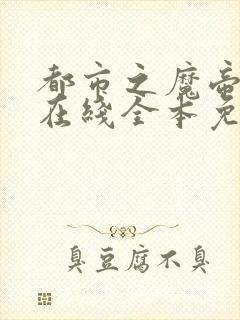 都市之魔帝
在线全本免
臭豆腐不臭